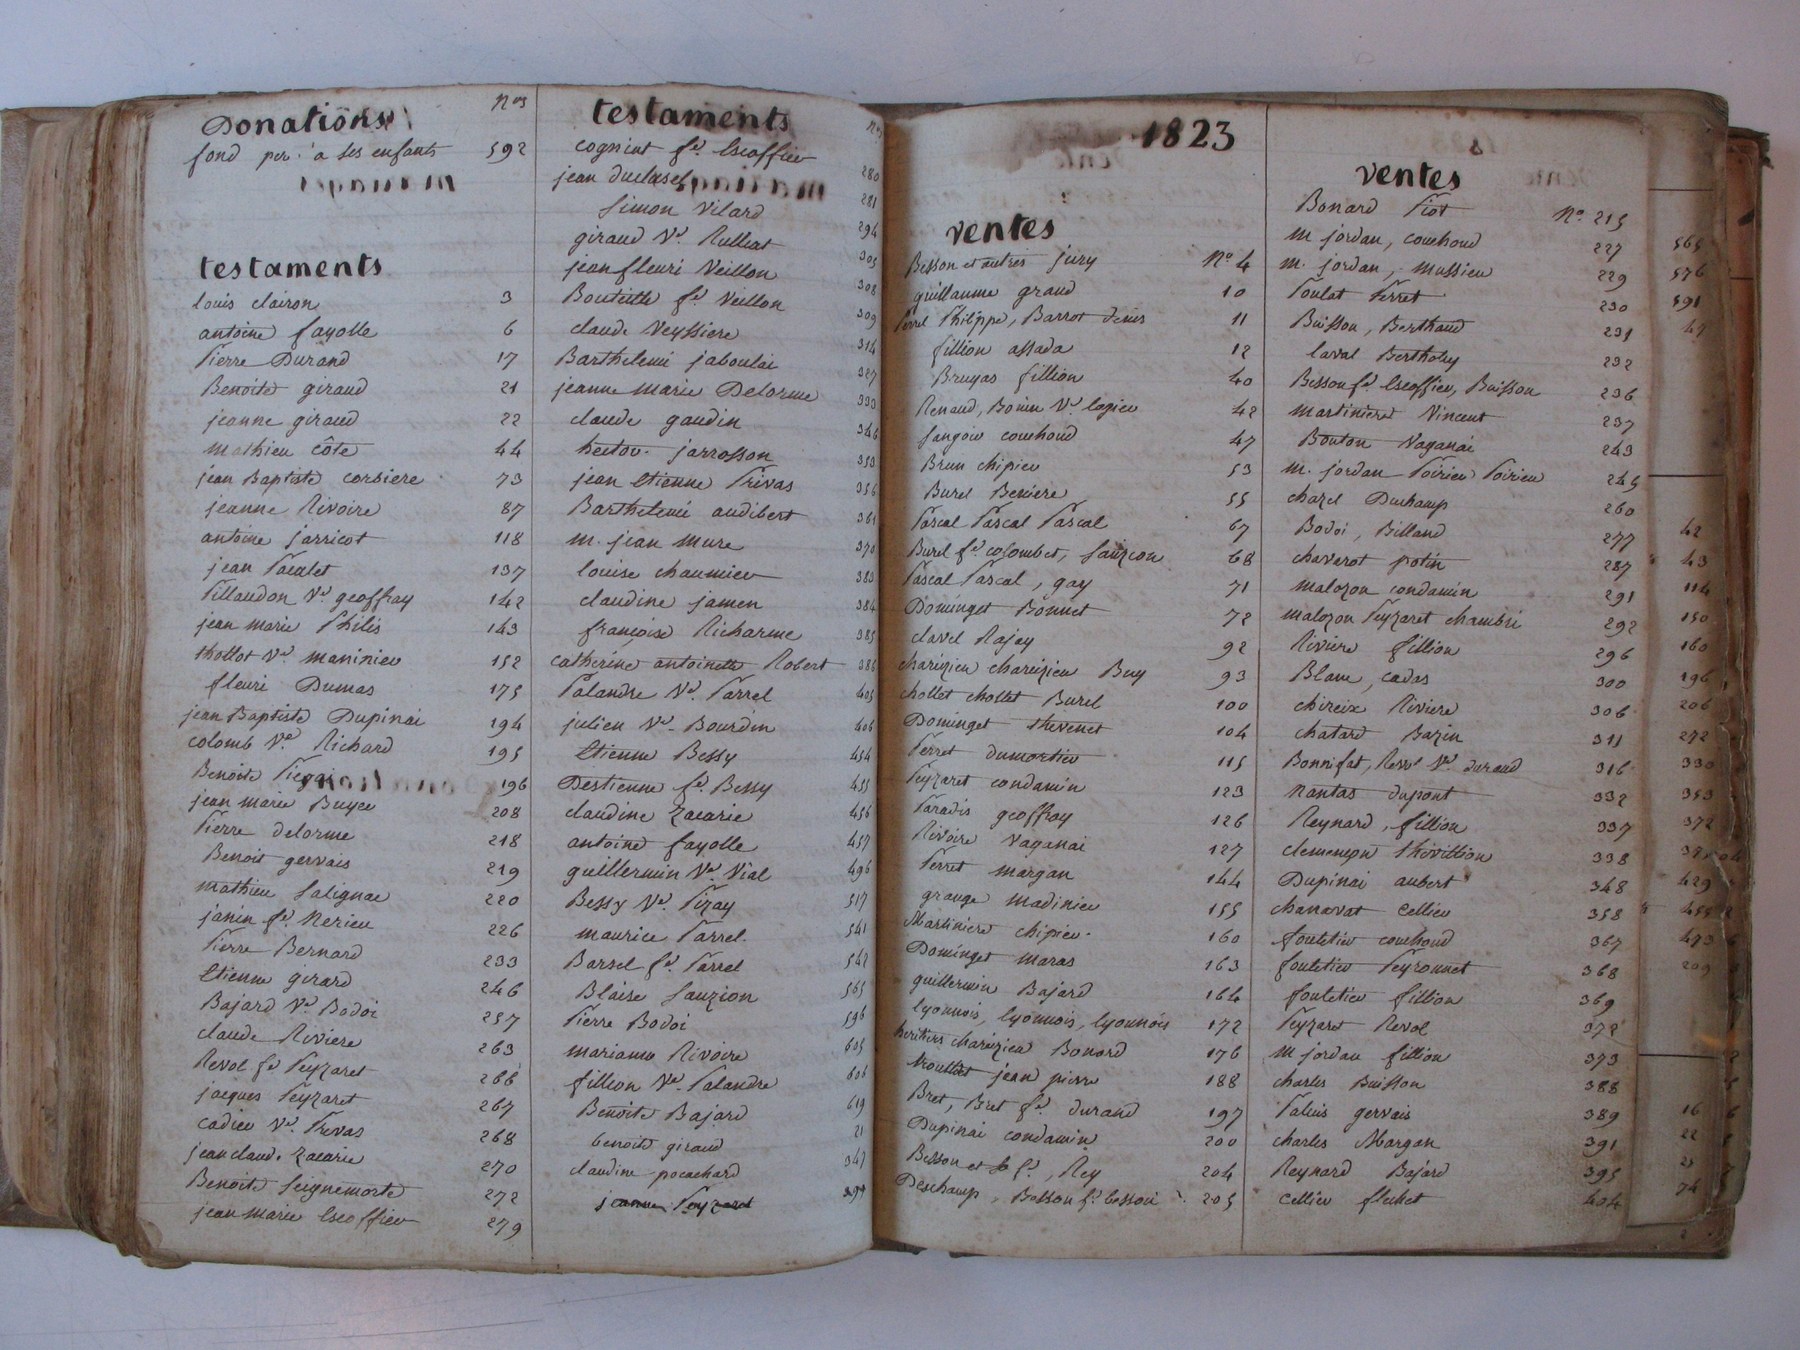 Donations
Nos
fond per. a ses enfants 592
testaments
louis clairon 3
antoine fayolle 6
Pierre Durand 17
Benoite giraud 21
jeanne giraud 22
mathieu côte 44
jean Baptiste corsiere 73
jeanne Rivoire 87
antoine jarricot 118
jean Paulet 137
Pillaudon Ve geoffray 142
jean marie Philis 143
thollot Ve marinier 152
fleuri Dumas 175
jean Baptiste Dupinai 194
colomb Ve Richard 195
Benoite 196
jean marie Buyer 208
Pierre delorme 218
Benoit gervais 219
mathieu Salignac 220
janin fe Nerieu 226
Pierre Bernard 233
Etienne girard 246
Bajard Ve Bodoi 257
claude Riviere 263
Revol fe Peyzaret 266
jacques Peyzaret 267
cadieu Ve Privas 268
jean claude Zacarie 270
Benoite Seignemorte 272
jean marie Escoffier 279
testaments
cognint fe Escoffier 280
jean duclusel 281
Simon Vilard 294
giraud Ve Rulliat 305
jean fleuri Veillon 308
Bouteille fe Veillon 309
claude Veyssiere 314
Barthelemi jaboulai 327
jeanne marie Delorme 333
claude gaudin 346
hector jarrosson 353
jean Etienne Privas 356
Barthelemi audibert 361
m. jean mure 370
louise chaumier 383
claudine jamen 384
françoise Richarme 385
catherine antoinette Robert 386
Palandre Ve Parrel 405
julien Ve Bourdin 406
Etienne Bessy 454
Destienne fe Bessy 455
claudine Zacarie 456
antoine fayolle 457
guillermin Ve Vial 496
Bessy Ve Pizay 517
maurice Parrel 541
Barsel fe Parrel 542
Blaise Sauzion 565
Pierre Bodoi 596
marianne Rivoire 605
fillion Ve Palandre 606
Benoite Bajard 619
benoite giraud 21
claudine pocachard 347
jeanne Peyzaret
1823
ventes
Besson et autres jury No 4
guillaume graud 10
Perrel Philippe, Barrot denis 11
fillion assada 12
Bruyas fillion 40
Renaud, Bonin Ve logier 42
Sangoin couchoud 47
Brun chipier 53
Burel Beniere 55
Pascal Pascal Pascal 67
Burel fe colombet, Sauzeon 68
Pascal Pascal, gay 71
Dominget Bonnet 72
clavel Rajay 92
charézieu charézieu Buy 93
chollet chollet Burel 100
Dominget thevenet 104
Perret dumortier 115
Peyzaret condamin 123
Paradis geoffray 126
Rivoire Vaganai 127
Perret margan 144
grange madinier 155
Martiniere chipier 160
Dominget maras 163
guillermin Bajard 164
lyonnois, lyonnois, lyonnois 172
heritiers charézieu Bonard 176
Moulliet jean pierre 188
Bret, Bret fe durand 197
Dupinai condamin 200
Besson et sa fe, Rey 204
Deschamp, Besson fe besson 205
ventes
Bonard Piot No 215
m jordan, couchoud 227
m. jordan, massieu 229
Poulat Perret 230
Buisson, Berthaud 231
laval Bertholey 232
Besson fe Escoffier, Buisson 236
martiniere Vincent 237
Bouton Vaganai 243
m. jordan Poirieu Poirieu 245
chazel Duchamp 260
Bodoi, Billand 277
chavarot potin 287
malozon condamin 291
malozon Peyzaret chambri 292
Riviere fillion 296
Blanc, cadas 300
chireix Riviere 306
chatard Bazin 311
Bonnifat, Revol Ve durand 316
nantas dupont 332
Reynard, fillion 337
clemençon thivillion 338
Dupinai aubert 348
chanavat Cellier 358
foutetier couchoud 367
foutetier Peyronnet 368
foutetier fillion 369
Peyzaret Revol 372
m jordan fillion 373
charles Buisson 388
Paluis gervais 389
charles Margan 391
Reynard Bajard 395
cellier fluchet 404
565
576
591
42
43
114
150
160
196
206
272
330
353
372
429
455
473
209
16
22
74